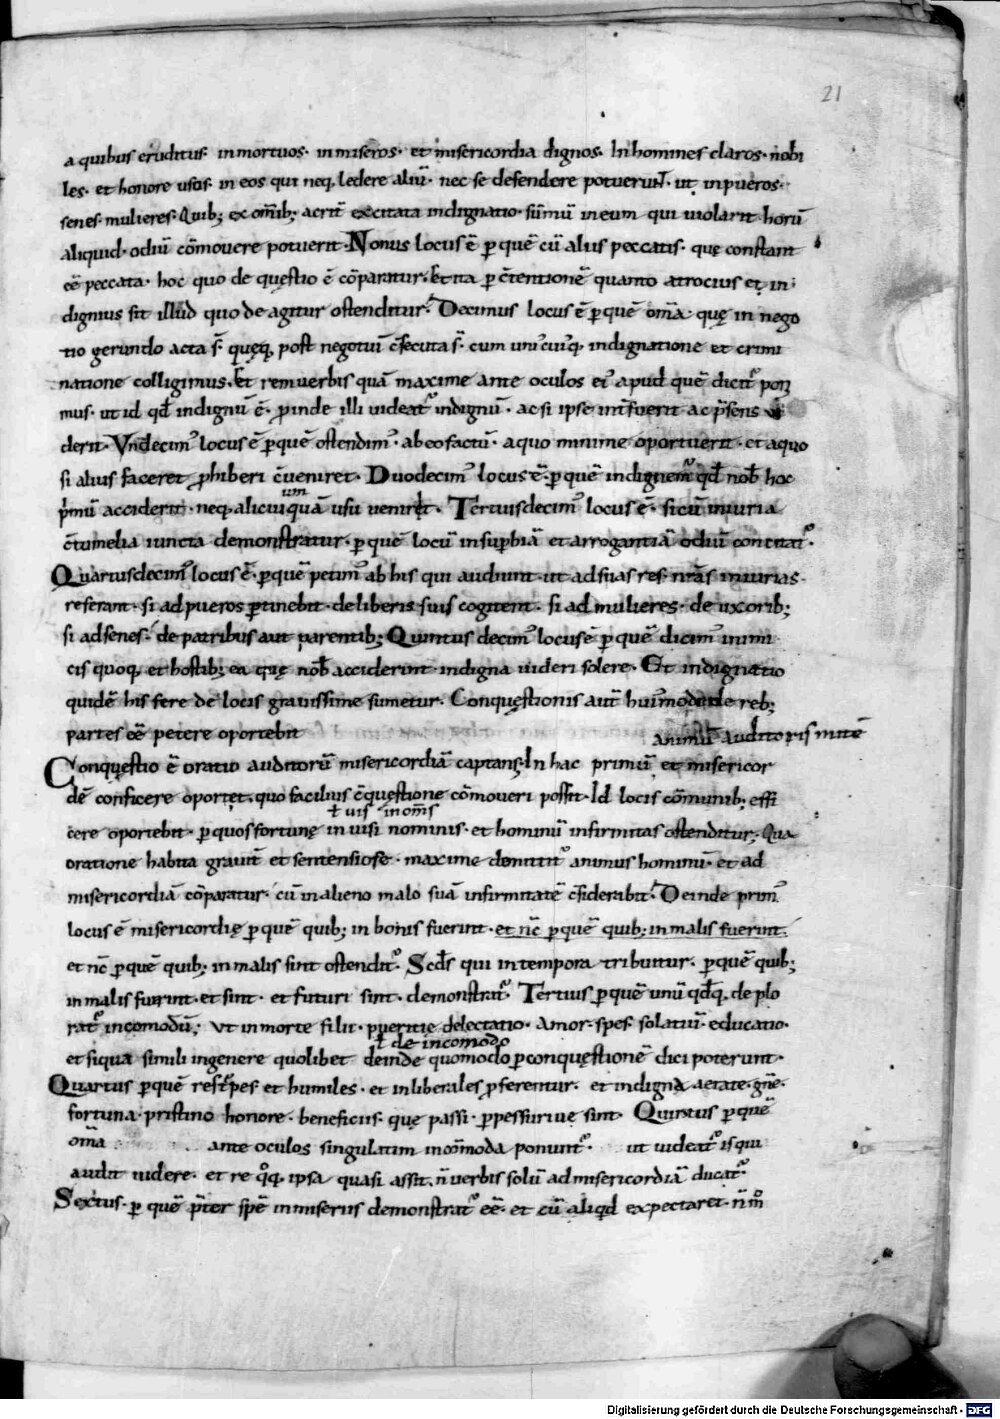 21
a quibus eruditus· in mortuos· in miseros· et misericordia dignos· In homines claros· nobi
les· et honore usos· in eos qui neq; ledere aliū· nec se defendere potuerunt̄· ut in pueros·
senes· mulieres· Quib; ex om̄ib; acrit̄ excitata indignatio· sūmū in eum qui uiolarit horū
aliquid· odiū cōmouere poterit· Nonus locus ē p̱ quē cū alus peccatis· quę constant
eē peccata· hoc quo de quęstio ē cōparatur· Et ita p̱ c̄tentionē quanto atrocius et in;
dignius sit illud quo de agitur ostenditur· Decimus locus ē p̱ quē om̄a quę in nego
tio gerundo acta s̄· quęq; post negotiū c̄secuta s̄· cum uniꝰcuiꝰq; indignatione et crimi
natione colligimus· Et rem uerbis quā maxime ante oculos eiꝰ apud quē dicitᷣ pon̄
mus· ut id qđ indignū ē· p̱inde illi uideatᷣ indignū· ac si ipse int̄fuerit ac p̄sens ui
derit· Vndecimꝰ locus ē p̱ quē ostendimꝰ· ab eo factū· a quo minime oportuerit· et a quo
si alius faceret ꝓhiberi c̄ueniret· Duodecimꝰ locus ē· p̱ quē indignemᷣ qđ nob̄ hoc
p̄mū acciderit· neq; alicui quā usu uenir&t· Tertiusdecimꝰ locus ē· si cū iniuria
um
c̄tumelia iuncta demonstratur· p̱ quē locū in sup̱biā et arrogantiā odiū concitatᷣ·
Quartusdecimꝰ locus ē· p̱ quē petimꝰ ab his qui audiunt· ut ad suas res n̄ras iniurias·
referant· si ad pueros p̱tinebit· de liberis suis cogitent· si ad mulieres· de uxorib;
si ad senes· de patribus aut parentib; Quintus decimꝰ locus ē p̱ quē dicimꝰ inimi
cis quoq; et hostib; ea quę nob̄ acciderint indigna uideri solere· Et indignatio
quidē his fere de locis grauissime sumetur· Conquęstionis aut̄ huiꝰmodi de reb;
partes eē petere oportebit
animū auditoris mitē
Conquęstio ē oratio auditorū misericordiā captans· In hac primū et misericor
dē conficere oportet· quo facilius c̄questione cōmoueri possit· Id locis cōmunib; effi
ł uis in om̄s
cere oportebit· p̱ quos fortunę in uisi nominis· et hominū infirmitas ostenditur; Qua
oratione habita grauit̄ et sentensiose· maxime demittitᷣ animus hominū· et ad
misericordiā cōparatur· cū in alieno malo suā infirmitatē c̄siderabit· Deinde primꝰ
locus ē misericordię p̱ quē quib; in bonis fuerint· et nc̄ p̱ quē quib; in malis fuerint·
et nc̄ p̱ quē quib; in malis sint ostenditᷣ· Sec̄ds qui in tempora tribuitur· p̱ quē quib;
in malis fuerint· et sint· et futuri sint· demonstratᷣ· Tertius p̱ quē unū qđq; de plo
ratᷣ incomodū; Vt in morte filii· pueritię delectatio· Amor· spes· solatiū· educatio·
ł de incomodo
et siqua simili in genere quolibet deinde quomodo p̱ conquęstionē dici poterunt·
Quartus p̱ quē res t̄pes et humiles· et inliberales ꝓferentur· et indigna aetate· gn̄e·
fortuna· pristino honore· beneficiis· quę passi· p̱pessuriue sint· Quintus p̱ quē
om̄a ante oculos singulatim incōmoda ponuntᷣ· ut uideatᷣ is qui
audit uidere· et re q̊q; ipsa quasi assit· n̄ uerbis solū ad misericordiā ducatᷣ·
Sextus· p̱ quē p̄ter spē in miseriis demonstratᷣ eē· et cū aliqđ expectaret· n̄ m̊